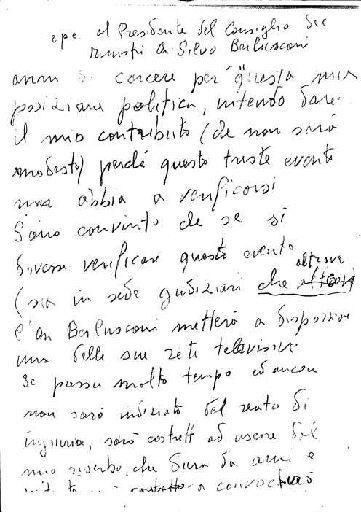 e p.c. al Presidente del Consiglio dei
Ministri On. Silvio Berlusconi
anni di carcere per questa mia
posizione politica, intendo dare
il mio contributo (che non sarà
modesto) perché questo triste evento
non abbia a verificarsi
Sono convinto che se si
dovesse verificare questo evento
(sia in sede giudiziari che altrove
l'on Berlusconi metterà a disposizione
una delle sue reti televisive
Se passa molto tempo ed ancora
non sarò indiziato del reato di
ingiuria, sarò costretto ad uscire dal
mio riserbo che dura da anni e
convocherò